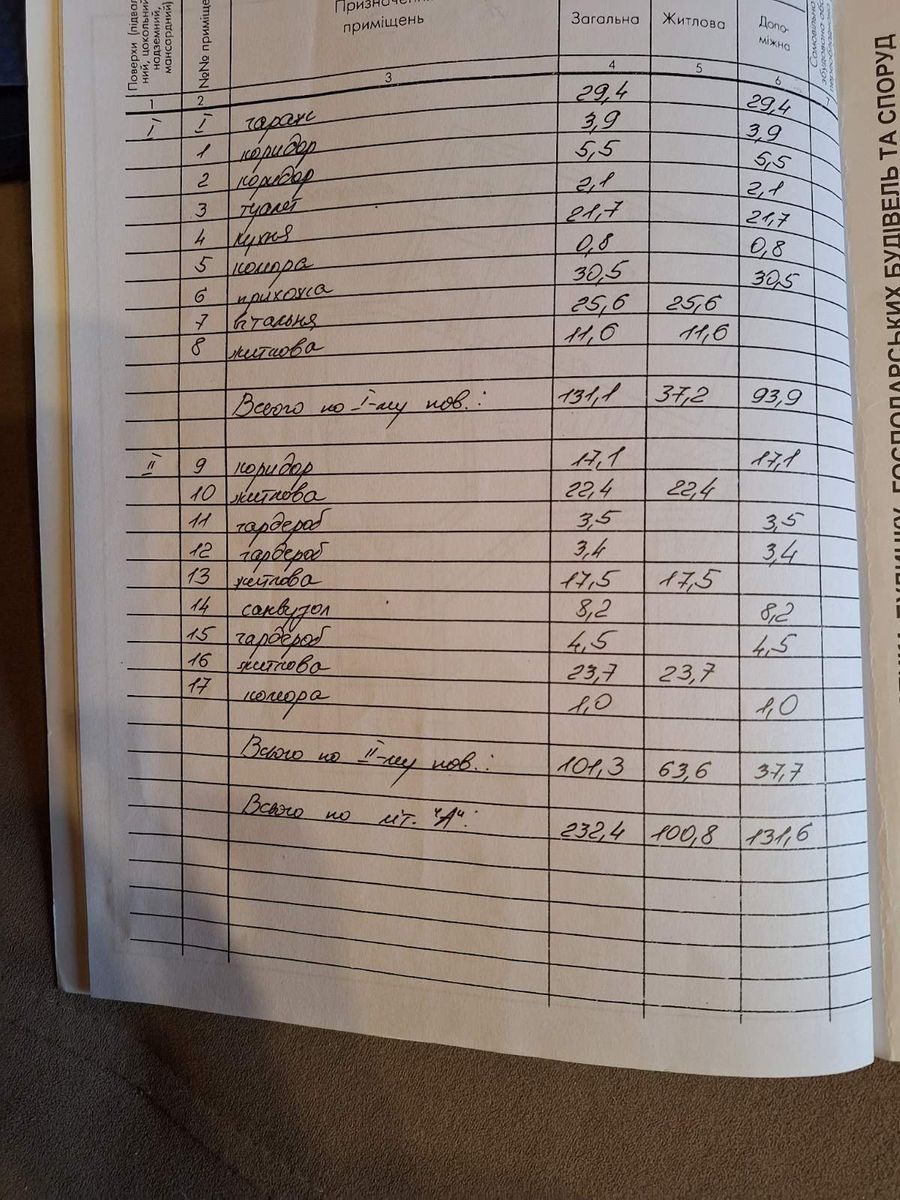 Поверхи (підваль-
ний, цокольний,
надземний,
мансардний)
№№ приміще
Призначення
приміщень
Загальна
Житлова
Допо-
міжна
1 2 3 4 5 6
I I гараж 29,4 29,4
1 коридор 3,9 3,9
2 коридор 5,5 5,5
3 туалет 2,1 2,1
4 кухня 21,7 21,7
5 комора 0,8 0,8
6 прихожа 30,5 30,5
7 вітальня 25,6 25,6
8 житлова 11,6 11,6
Всього по I-му пов.: 131,1 37,2 93,9
II 9 коридор 17,1 17,1
10 житлова 22,4 22,4
11 гардероб 3,5 3,5
12 гардероб 3,4 3,4
13 житлова 17,5 17,5
14 санвузол 8,2 8,2
15 гардероб 4,5 4,5
16 житлова 23,7 23,7
17 комора 1,0 1,0
Всього по II-му пов.: 101,3 63,6 37,7
Всього по літ. "А": 232,4 100,8 131,6
ГОСПОДАРСЬКИХ БУДІВЕЛЬ ТА СПОРУД